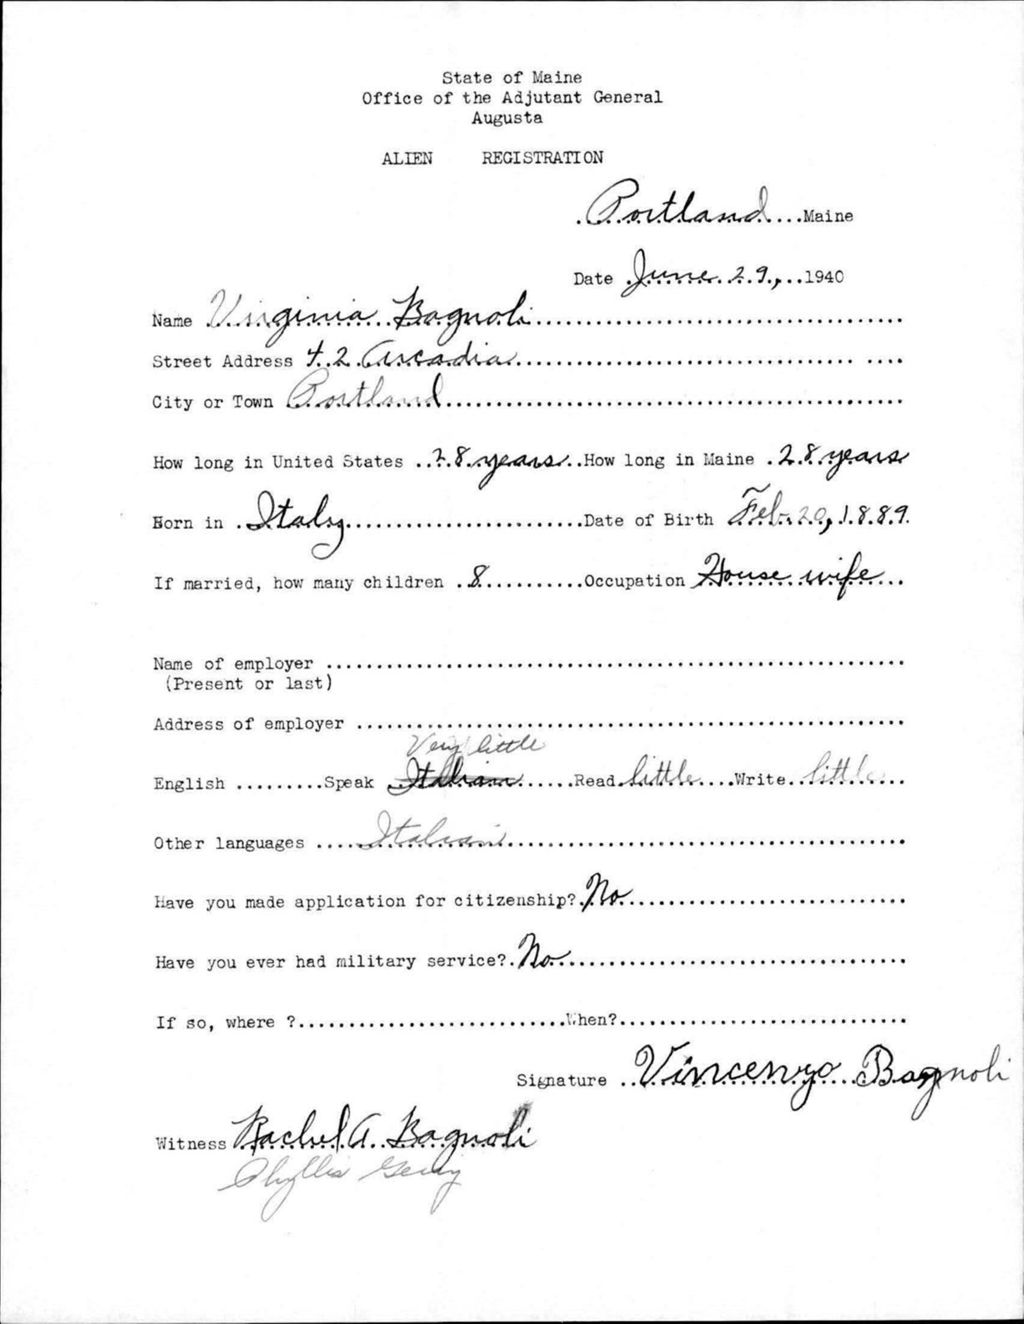 State of Maine
Office of the Adjutant General
Augusta
ALIEN REGISTRATION
Portland Maine
Date June 29, 1940
Name Virginia Bagnoli
Street Address 42 Arcadia
City or Town Portland
How long in United States 28 years How long in Maine 28 years
Born in Italy Date of Birth Feb. 20, 1889.
If married, how many children 8 Occupation House wife
Name of employer
(Present or last)
Address of employer
Very little
English Speak Italian Read little Write little
Other languages Italian
Have you made application for citizenship? No
Have you ever had military service? No
If so, where ? When?
Signature Vincenzo Bagnoli
Witness Rachel A. Bagnoli
Phyllis